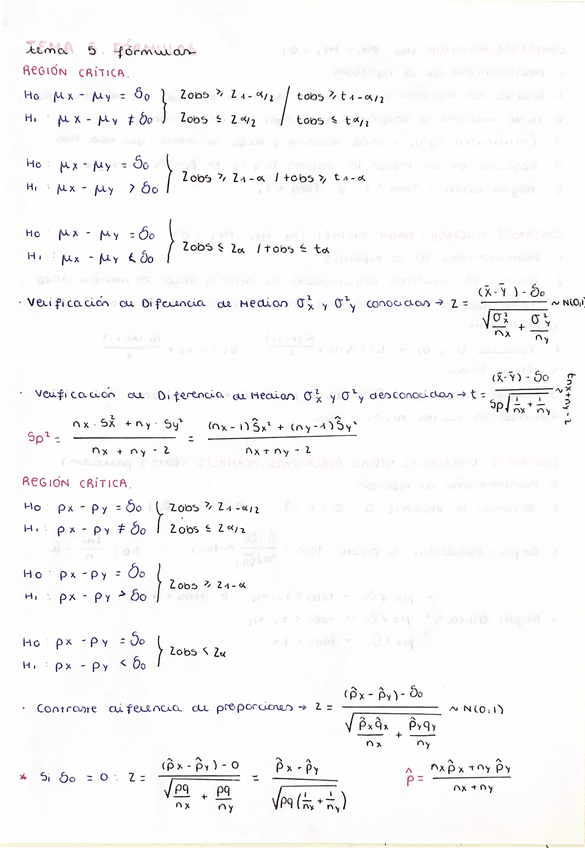 tema 5 fórmulas
REGIÓN CRÍTICA.
H0 μx - μy = δ0 } Zobs ≥ Z1-α/2 / tobs ≥ t1-α/2
H1: μx - μy ≠ δ0 } Zobs ≤ Zα/2 / tobs ≤ tα/2
H0: μx - μy = δ0 } Zobs ≥ Z1-α / tobs ≥ t1-α
H1: μx - μy > δ0
H0: μx - μy = δ0 } Zobs ≤ Zα / tobs ≤ tα
H1: μx - μy < δ0
· Verificación de Diferencia de Medias σ²x y σ²y conocidas → Z = ((x̄ - ȳ) - δ0) / √(σ²x/nx + σ²y/ny) ~ N(0,1)
· Verificación de Diferencia de Medias σ²x y σ²y desconocidas → t = ((x̄ - ȳ) - δ0) / (Sp√(1/nx + 1/ny)) ~ tnx+ny-2
Sp² = (nx · Sx² + ny · Sy²) / (nx + ny - 2) = ((nx - 1)Ŝx² + (ny - 1)Ŝy²) / (nx + ny - 2)
REGIÓN CRÍTICA.
H0: px - py = δ0 { Zobs ≥ Z1-α/2
H1: px - py ≠ δ0 { Zobs ≤ Zα/2
H0: px - py = δ0 } Zobs ≥ Z1-α
H1: px - py > δ0
H0: px - py = δ0 } Zobs < Zα
H1: px - py < δ0
· Contraste diferencia de proporciones → Z = ((p̂x - p̂y) - δ0) / √(p̂xq̂x/nx + p̂yq̂y/ny) ~ N(0,1)
* Si δ0 = 0: Z = ((p̂x - p̂y) - 0) / √(pq/nx + pq/ny) = (p̂x - p̂y) / √(pq(1/nx + 1/ny)) p̂ = (nxp̂x + nyp̂y) / (nx + ny)